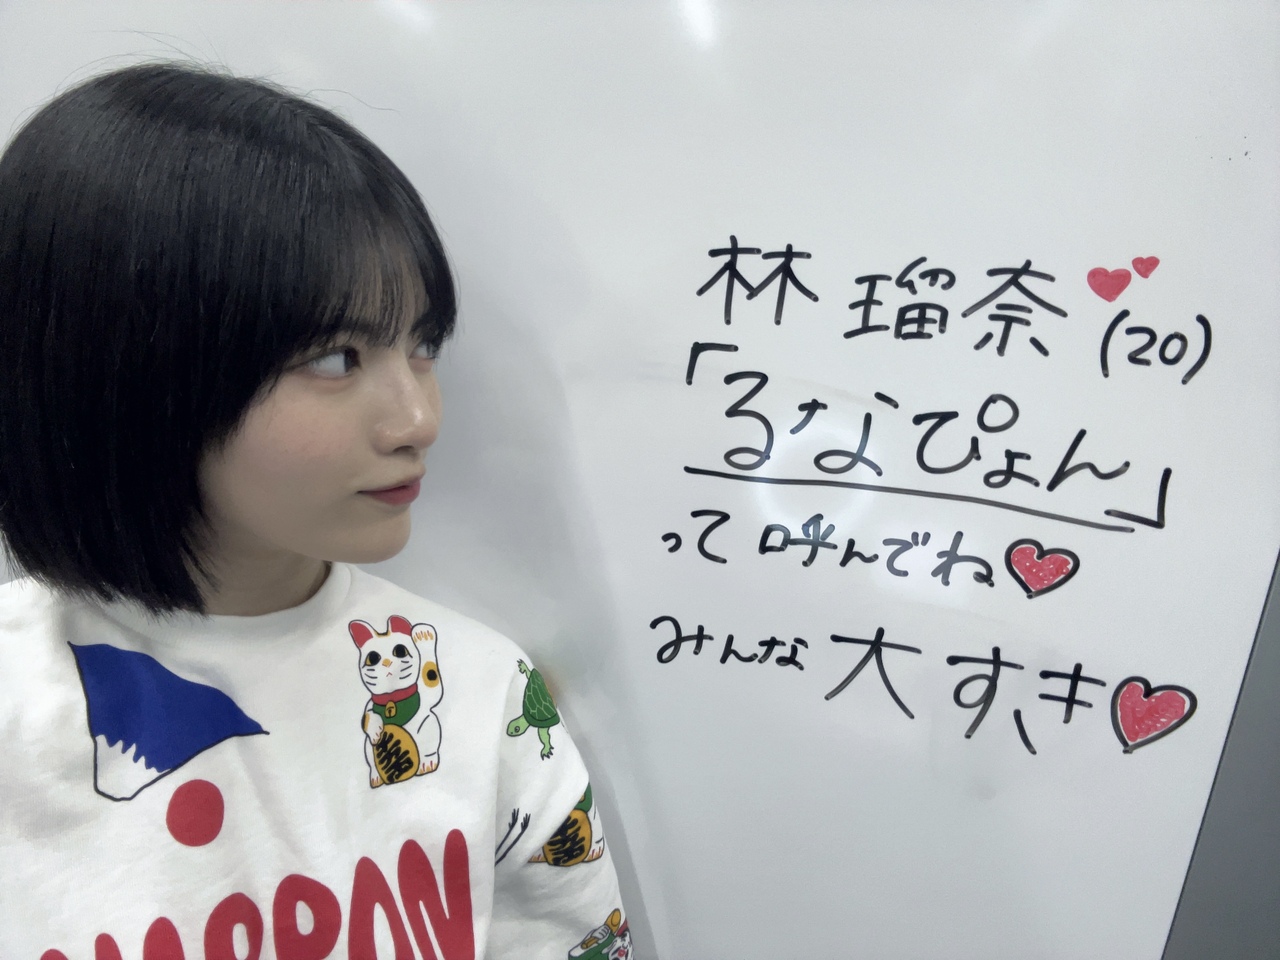 林 瑠奈💕(20)
「るなぴょん」
って呼んでね♥
みんな大すき♥
NIPPON